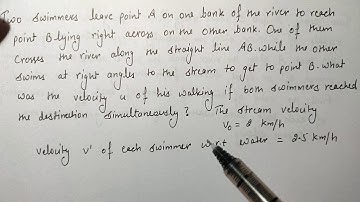 Two swimmers leave point A on one bank of the river to reach
point B lying right across on the other bank. One of them
Crosses the river along the straight line AB. while the other
swims at right angles to the stream to get to point B. what
was the velocity u of his walking if both swimmers reached
the destination simultaneously? The stream velocity
V₀ = 2 km/h
velocity v' of each swimmer w.r.t water = 2.5 km/h